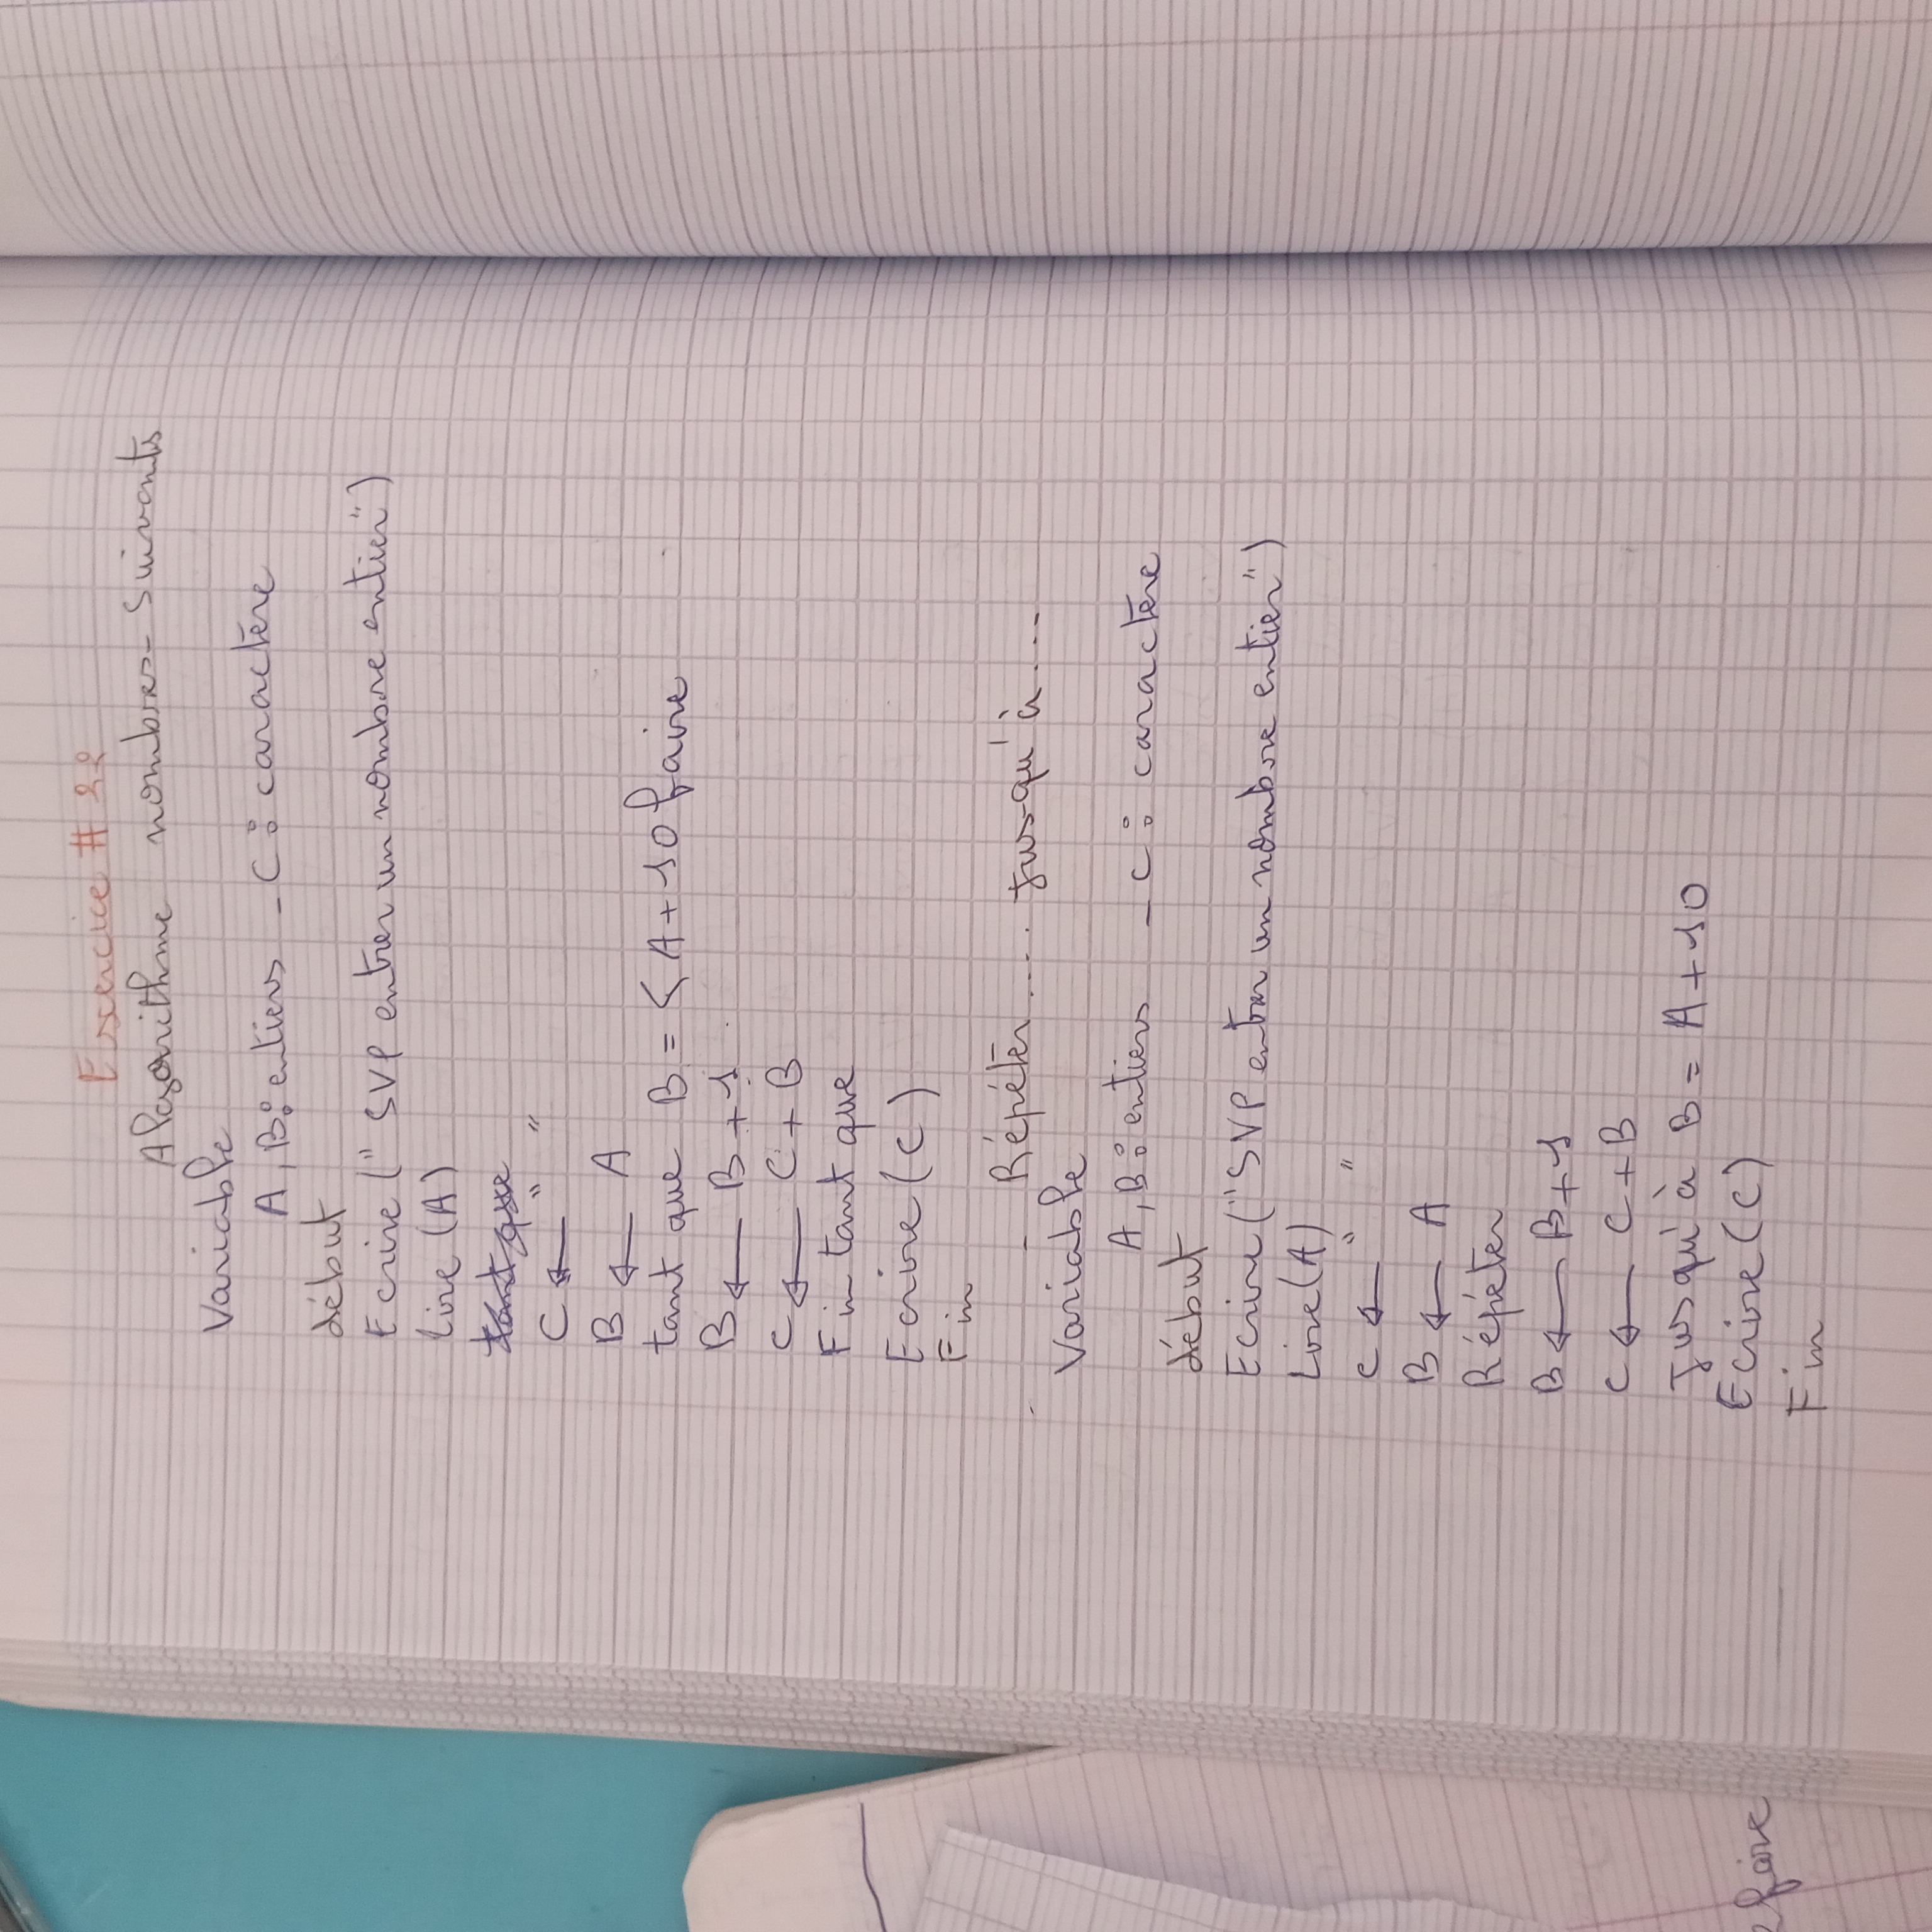 Exercice # 22
Algorithme nombres-suivants
Variable
A, B : entiers - C : caractère
début
Ecrire (" SVP entrer un nombre entier")
Lire (A)
tant que
C ← " "
B ← A
tant que B = < A + 10 faire
B ← B + 1
C ← C + B
Fin tant que
Ecrire (C)
Fin
- Répéter .... Jusqu'à ...
Variable
A, B : entiers - C : caractère
début
Ecrire ("SVP entrer un nombre entier")
Lire (A)
C ← " "
B ← A
Répéter
B ← B + 1
C ← C + B
Jusqu'à B = A + 10
Ecrire (C)
Fin
faire